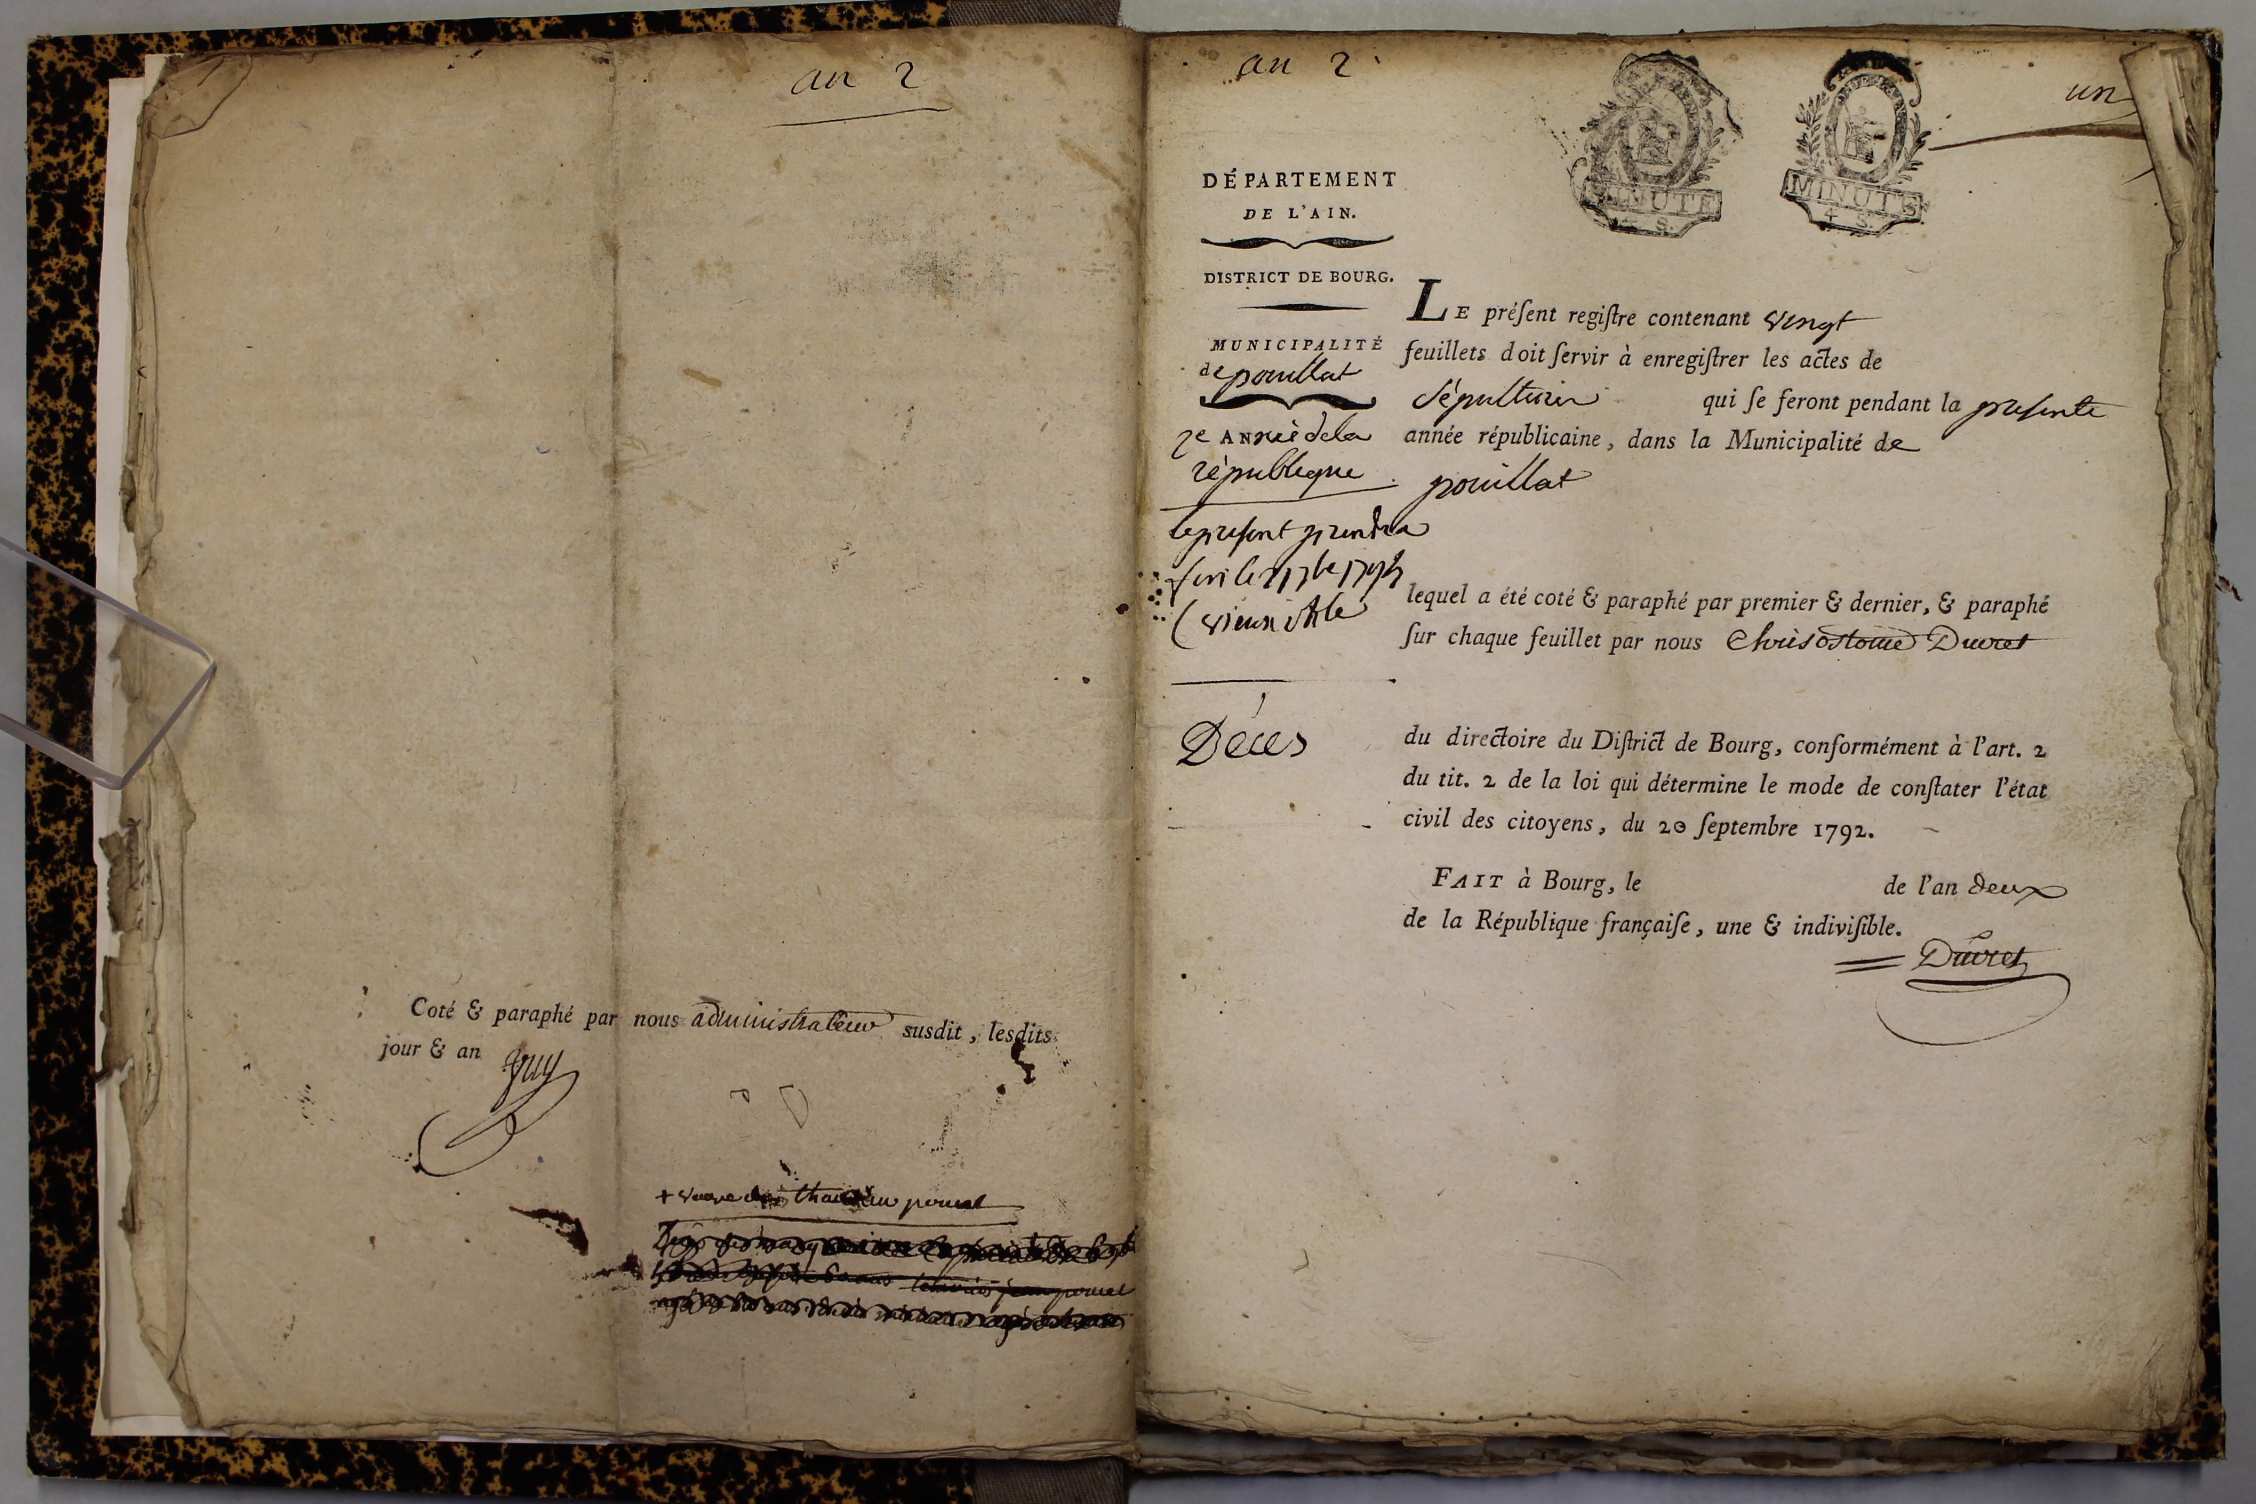 an 2
Coté & paraphé par nous administrateur susdit, lesdits
jour & an
+ veuve pouret
an 2
un
MINUTE
4 S.
MINUTE
4 S.
DÉPARTEMENT
DE L'AIN.
DISTRICT DE BOURG.
MUNICIPALITÉ
de pouillat
2e ANnée de la
république
le present prendra
Déces
LE préſent regiſtre contenant vingt
feuillets doit ſervir à enregiſtrer les actes de
sépultures qui ſe feront pendant la presente
année républicaine, dans la Municipalité de
pouillat
lequel a été coté & paraphé par premier & dernier, & paraphé
ſur chaque feuillet par nous Chrisostome Duvret
du directoire du Diſtrict de Bourg, conformément à l'art. 2
du tit. 2 de la loi qui détermine le mode de conſtater l'état
civil des citoyens, du 20 ſeptembre 1792.
FAIT à Bourg, le de l'an deux
de la République françaiſe, une & indiviſible.
Duvret